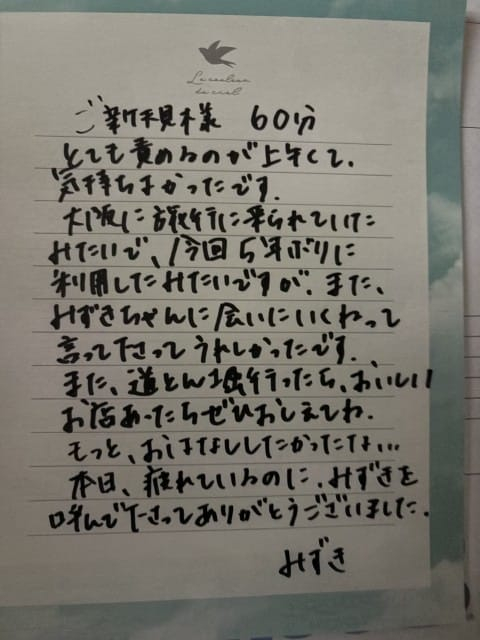 La couleur
du ciel
ご新規様 60分
とても責めるのが上手くて、
気持ちよかったです。
大阪に旅行に来られていた
みたいで、今回5年ぶりに
利用したみたいですが、また、
みずきちゃんに会いにいくねって
言って下さってうれしかったです。
また、道とん堀行ったら、おいしい
お店あったらぜひおしえてね.
もっと、おはなししたかったな...
本日、疲れているのに、みずきを
呼んで下さってありがとうございました.
みずき